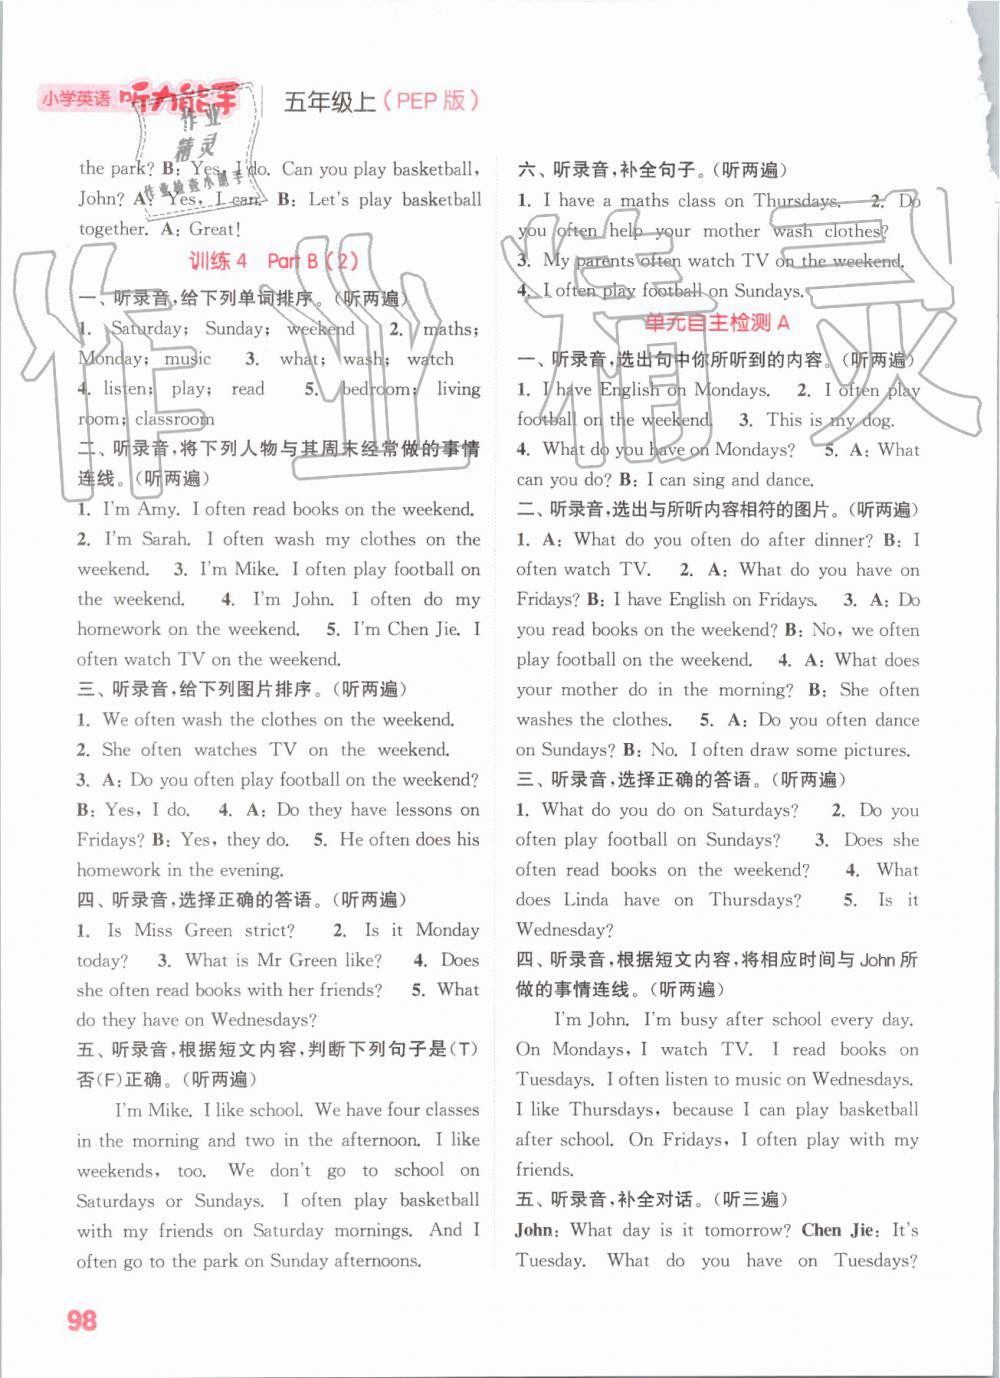 小学英语 听力能手 五年级上(PEP版)
the park? B: Yes, I do. Can you play basketball,
John? A: Yes, I can. B: Let's play basketball
together. A: Great!
训练4 Part B(2)
一、听录音,给下列单词排序。(听两遍)
1. Saturday; Sunday; weekend 2. maths;
Monday; music 3. what; wash; watch
4. listen; play; read 5. bedroom; living
room; classroom
二、听录音,将下列人物与其周末经常做的事情
连线。(听两遍)
1. I'm Amy. I often read books on the weekend.
2. I'm Sarah. I often wash my clothes on the
weekend. 3. I'm Mike. I often play football on
the weekend. 4. I'm John. I often do my
homework on the weekend. 5. I'm Chen Jie. I
often watch TV on the weekend.
三、听录音,给下列图片排序。(听两遍)
1. We often wash the clothes on the weekend.
2. She often watches TV on the weekend.
3. A: Do you often play football on the weekend?
B: Yes, I do. 4. A: Do they have lessons on
Fridays? B: Yes, they do. 5. He often does his
homework in the evening.
四、听录音,选择正确的答语。(听两遍)
1. Is Miss Green strict? 2. Is it Monday
today? 3. What is Mr Green like? 4. Does
she often read books with her friends? 5. What
do they have on Wednesdays?
五、听录音,根据短文内容,判断下列句子是(T)
否(F)正确。(听两遍)
I'm Mike. I like school. We have four classes
in the morning and two in the afternoon. I like
weekends, too. We don't go to school on
Saturdays or Sundays. I often play basketball
with my friends on Saturday mornings. And I
often go to the park on Sunday afternoons.
六、听录音,补全句子。(听两遍)
1. I have a maths class on Thursdays. 2. Do
you often help your mother wash clothes?
3. My parents often watch TV on the weekend.
4. I often play football on Sundays.
单元自主检测A
一、听录音,选出句中你所听到的内容。(听两遍)
1. I have English on Mondays. 2. I often play
football on the weekend. 3. This is my dog.
4. What do you have on Mondays? 5. A: What
can you do? B: I can sing and dance.
二、听录音,选出与所听内容相符的图片。(听两遍)
1. A: What do you often do after dinner? B: I
often watch TV. 2. A: What do you have on
Fridays? B: I have English on Fridays. 3. A: Do
you read books on the weekend? B: No, we often
play football on the weekend. 4. A: What does
your mother do in the morning? B: She often
washes the clothes. 5. A: Do you often dance
on Sundays? B: No. I often draw some pictures.
三、听录音,选择正确的答语。(听两遍)
1. What do you do on Saturdays? 2. Do you
often play football on Sundays? 3. Does she
often read books on the weekend? 4. What
does Linda have on Thursdays? 5. Is it
Wednesday?
四、听录音,根据短文内容,将相应时间与John所
做的事情连线。(听两遍)
I'm John. I'm busy after school every day.
On Mondays, I watch TV. I read books on
Tuesdays. I often listen to music on Wednesdays.
I like Thursdays, because I can play basketball
after school. On Fridays, I often play with my
friends.
五、听录音,补全对话。(听三遍)
John: What day is it tomorrow? Chen Jie: It's
Tuesday. What do you have on Tuesdays?
98
作业精灵
作业
精灵
作业检查小助手